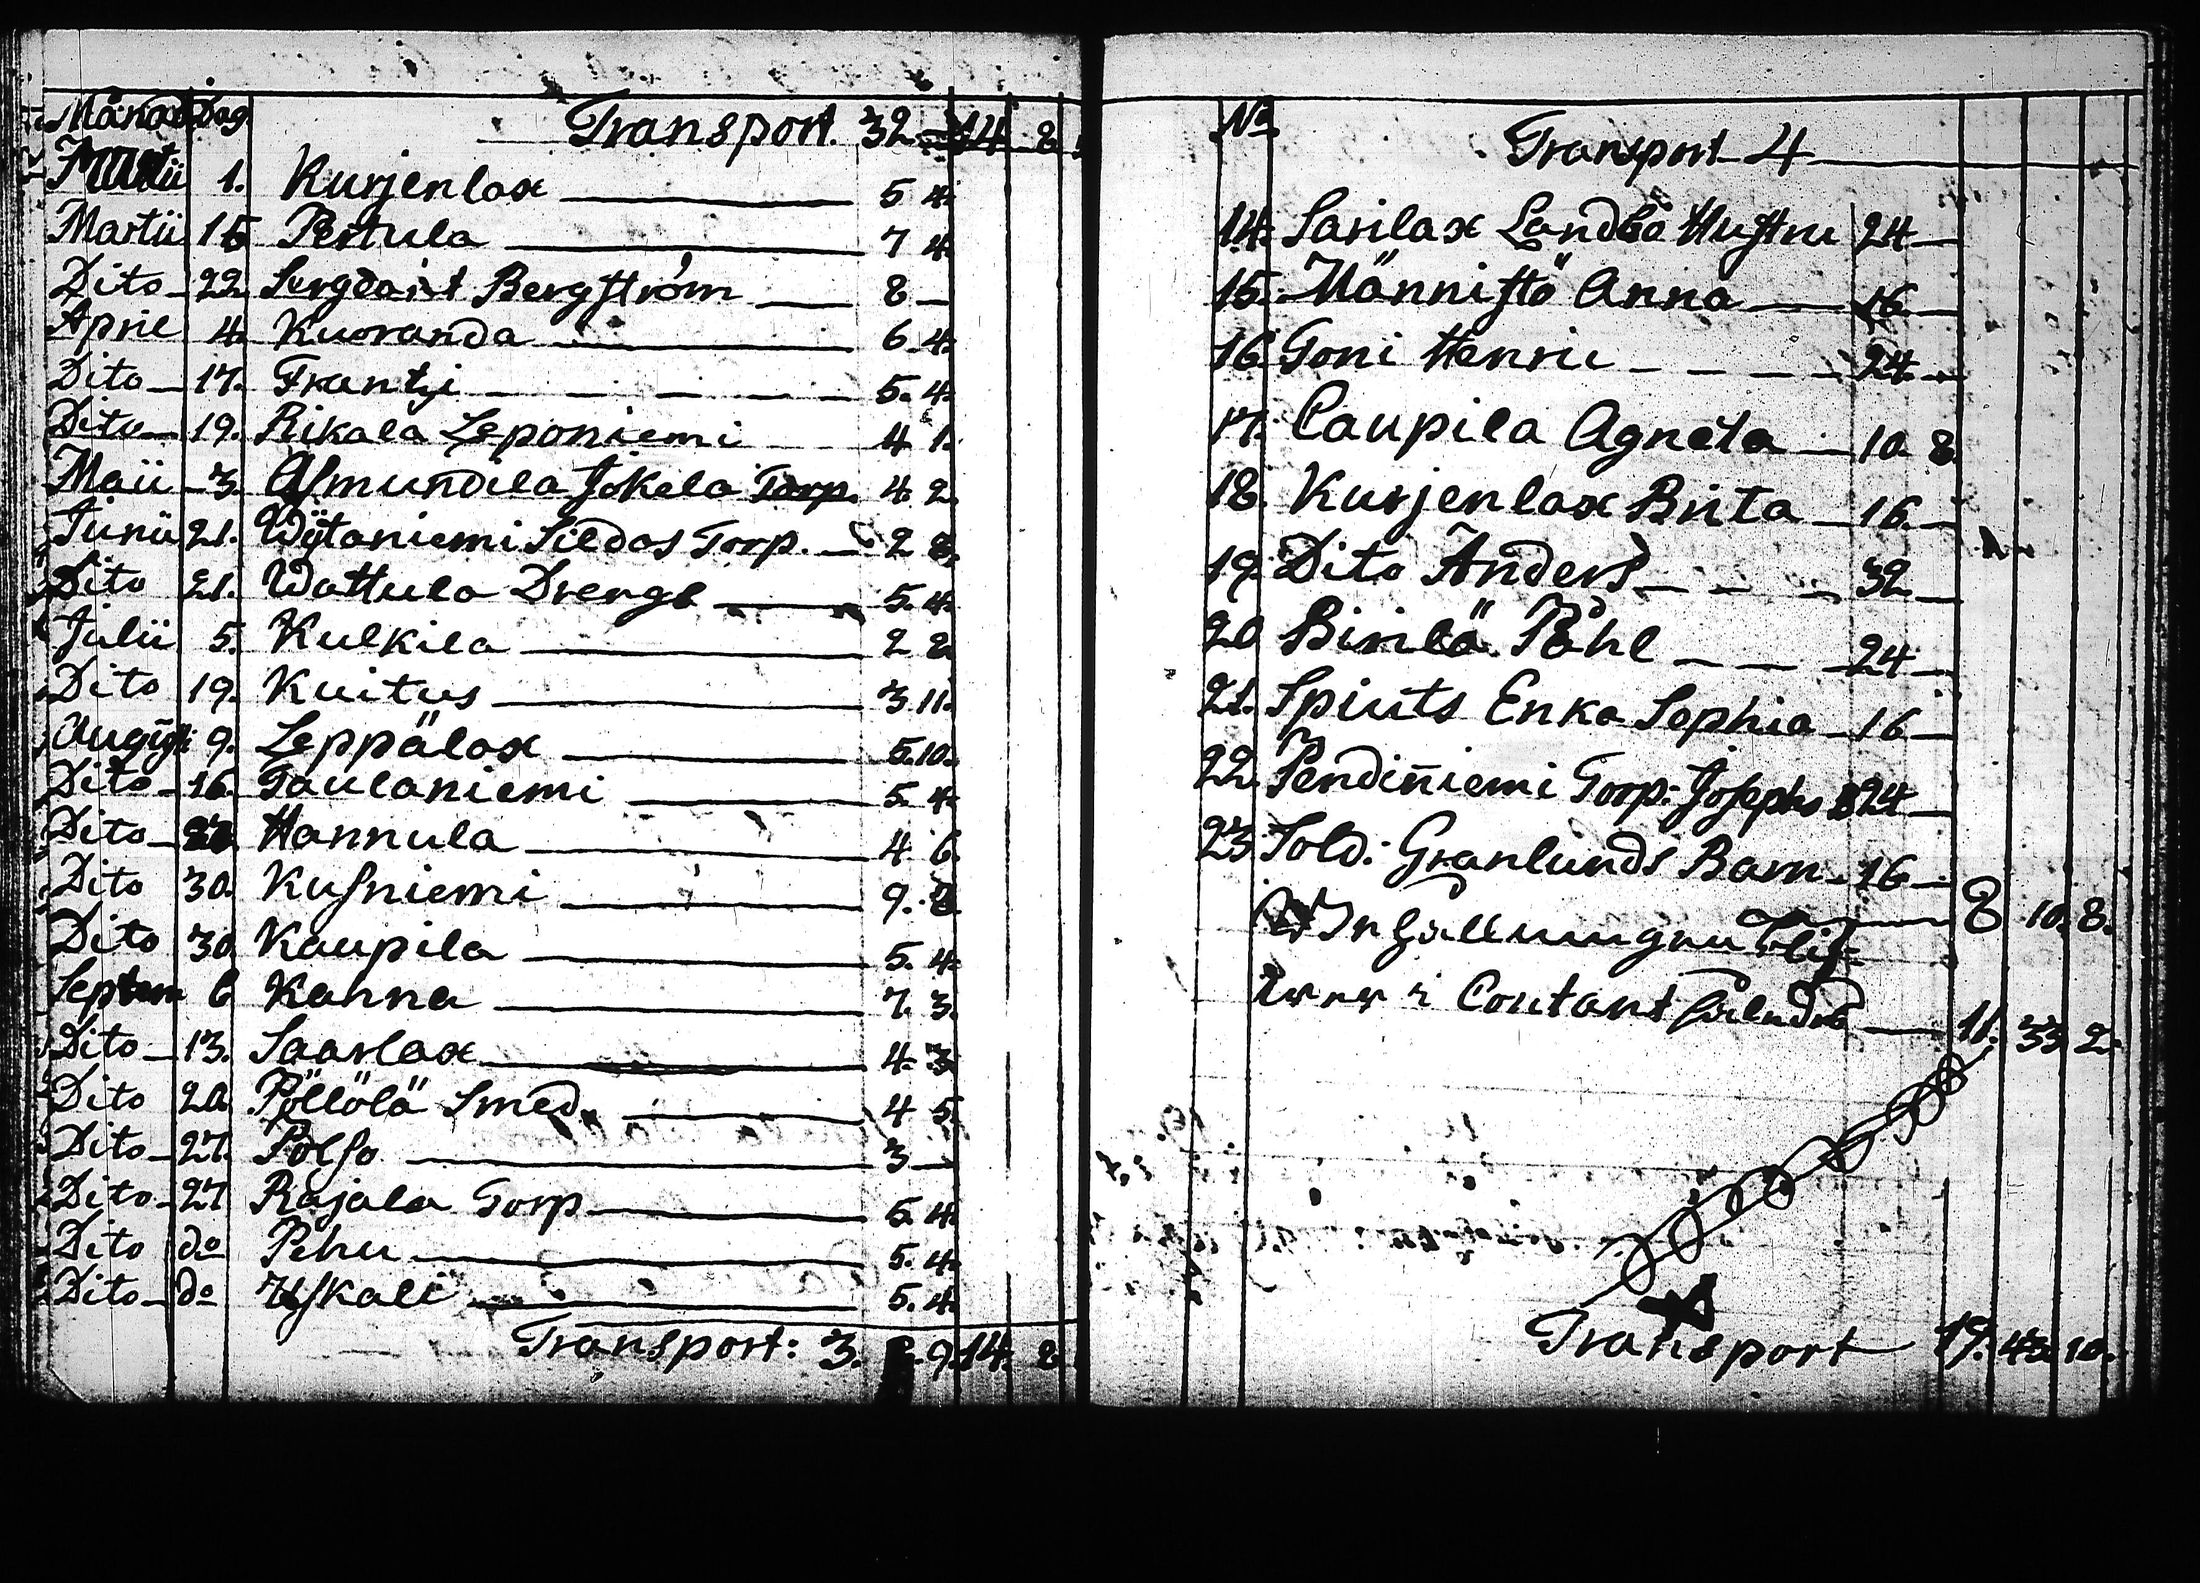 Månad Dag Transport. 32. 14 8
Martii 1. Kurjenlax 5 4.
Martii 15 Pertula 7 4.
Dito 22 Sergeant Bergström 8
April 4. Kuoranda 6 4.
Dito 17. Frantzi 5. 4.
Dito 19. Rikala Leponiemi 4 1.
Maii 3. Asmundila Jokela Torp. 4 2.
Junii 21. Wijtaniemi Sildas Torp. 2 8.
Dito 21. Wattula Drengb 5. 4.
Julii 5. Kulkila 2 2
Dito 19. Kuitus 3 11.
Augusti 9. Leppälax 5. 10.
Dito 16. Taulaniemi 5. 4.
Dito Hannula 4 6.
Dito 30. Kusniemi 9. 8
Dito 30 Kaupila 5. 4.
Septem 6 Kanna 7. 3.
Dito 13. Saarlax 4. 3
Dito 20. Pöllölä Smed. 4 5.
Dito 27. Polso 3
Dito 27 Rajala Torp 5. 4.
Dito do Pehu 5. 4.
Dito do Uskali 5. 4.
Transport: 3. 9. 14. 8
No. Transport 4
14. Sarilax Landbo Hustru 24
15. Männistö Anna 16
16. Toni Henric 24
17. Caupila Agneta 10. 8.
18. Kurjenlax Brita 16
19. Dito Anders 32
20 Birilä Påhl 24
21. Spiuts Enka Sophia 16
22. Pendiniemi Torp: Josephs B 24
23 Sold: Granlunds Barn 16
8 10. 8.
i Contant 11. 33 2.
Transport 19. 43 10.